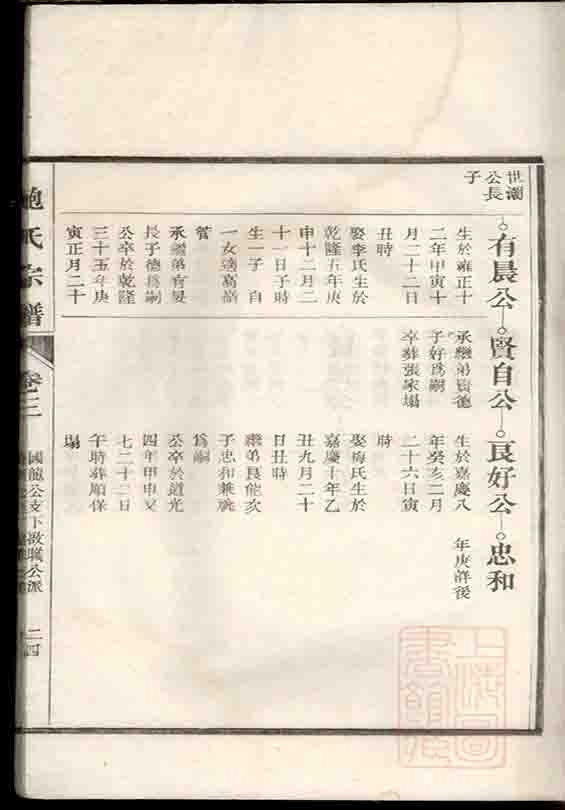 世潮
公長
子
有晨公
賢自公
良好公
忠和
生於雍正十
二年甲寅十
月二十二日
丑時
娶李氏生於
乾隆五年庚
申十二月二
十一日子時
生一子 自
一女適高
承繼弟有
長子德為嗣
公卒於乾隆
三十五年庚
寅正月二十
承繼弟賢德
子好為嗣
卒葬張家塌
生於嘉慶八
年癸亥二月
二十六日寅
時
娶梅氏生於
嘉慶十年乙
丑九月二十
日丑時
繼弟良能次
子忠和兼祧
為嗣
公卒於道光
四年甲申又
七月二十二日
午時葬順保
塌
年庚詳後
鮑氏宗譜
卷三
國龍公支下啟職公派
二四
上海圖
書館藏